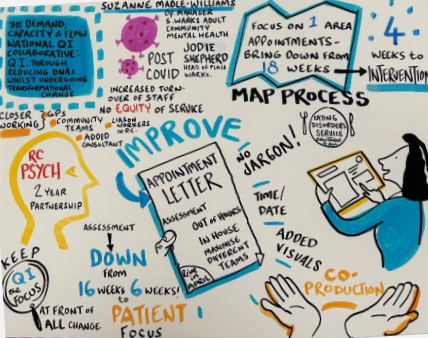 SUZANNE MABLE-WILLIAMS
DP. MANAGER
S. WARKS ADULT
COMMUNITY
MENTAL HEALTH
THE DEMAND,
CAPACITY & FLOW
NATIONAL QI
COLLABORATIVE:
QI THROUGH
REDUCING DNAs
WHILST UNDERGOING
TRANSFORMATIONAL
CHANGE
POST
COVID
JODIE
SHEPHERD
HEAD OF PLACE
WARKS.
INCREASED TURN-
OVER OF STAFF
NO EQUITY OF SERVICE
FOCUS ON 1 AREA
APPOINTMENTS-
BRING DOWN FROM
18 WEEKS
4
WEEKS to
INTERVENTION
MAP PROCESS
CLOSER
WORKING
GPs
COMMUNITY
TEAMS
LIASON
WORKERS
IN P.C.
ADDED
CONSULTANT
RC
PSYCH
2 YEAR
PARTNERSHIP
IMPROVE
APPOINTMENT
LETTER
ASSESSMENT
OUT OF HOURS
IN HOUSE
MAXIMISE
DIFFERENT
TEAMS
LIVE IN
APRIL
NO JARGON!
TIME/
DATE
ADDED
VISUALS
EATING
DISORDERS
SERVICE
CO-
PRODUCTION
ASSESSMENT
DOWN
FROM
16 WEEKS
to
6 WEEKS!
PATIENT
FOCUS
KEEP
QI
the
FOCUS
AT FRONT OF
ALL CHANGE